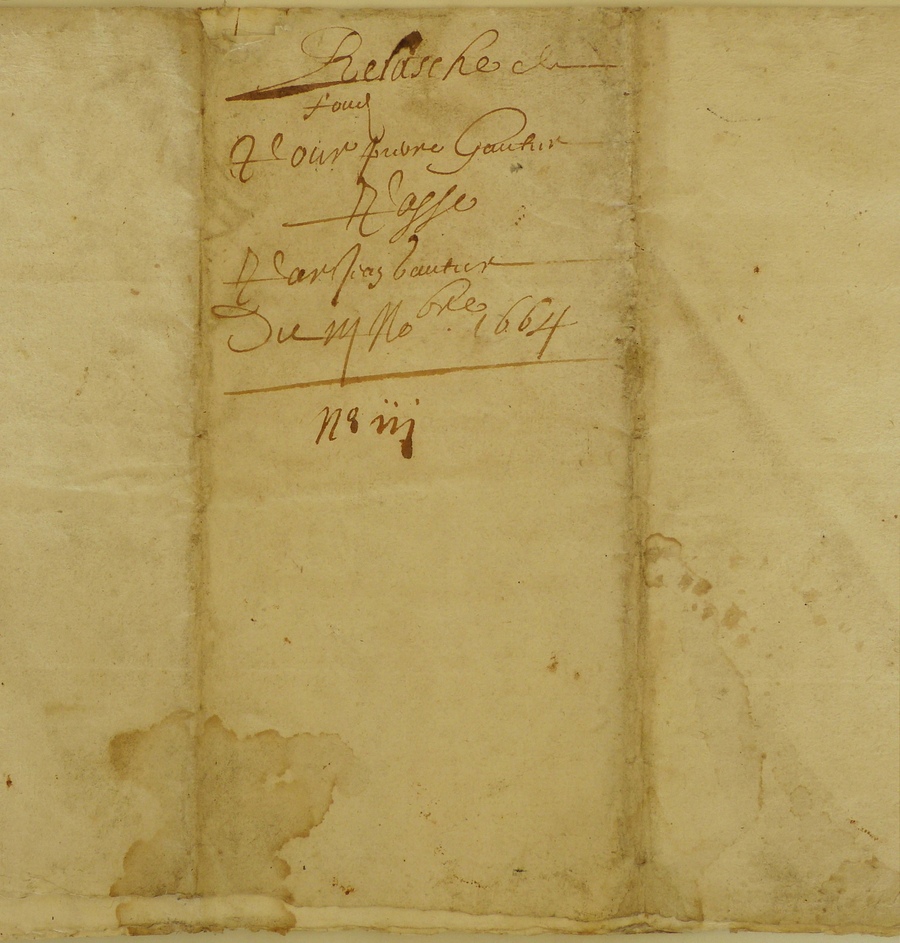 Relasche de
fond
Pour pierre Gautier
Passé
Par Jean Gautier
Du iij Nobre 1664
N8 iij